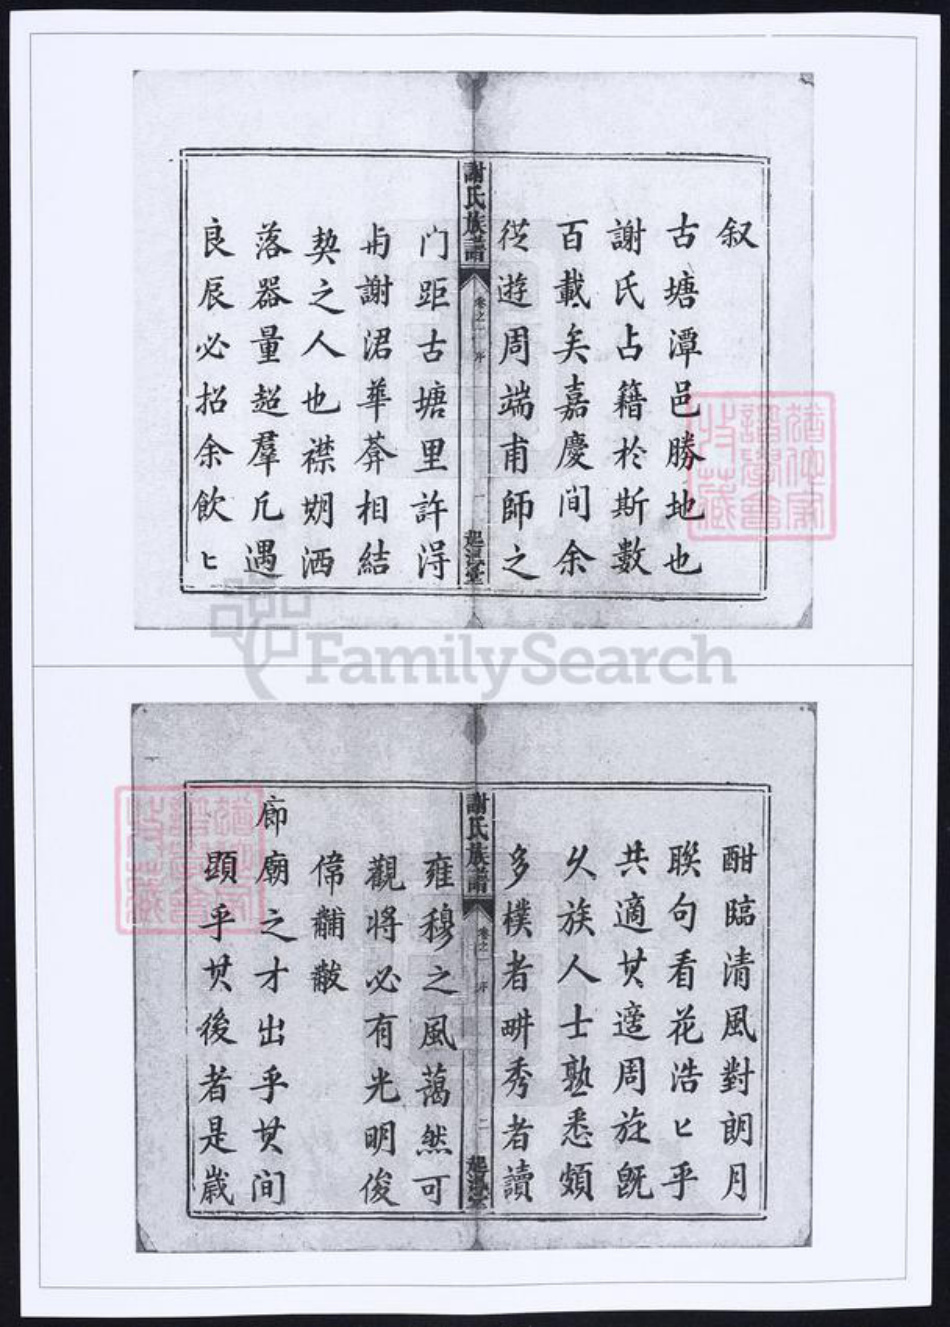 叙
古塘潭邑勝地也
謝氏占籍於斯數
百載矣嘉慶间余
從遊周端甫師之
謝氏族譜
卷之一
序
一
门距古塘里許淂
与謝涒華莾相結
契之人也襟期洒
落器量超羣凢遇
良辰必招余飲匕
FamilySearch
酣臨清風對朗月
聨句看花浩匕乎
共適其適周旋既
乆族人士熟悉頗
多樸者畊秀者讀
謝氏族譜
卷之一
序
二
雍穆之風藹然可
觀將必有光明俊
偉黼黻
廊廟之才出乎其间
顕乎其後者是嵗